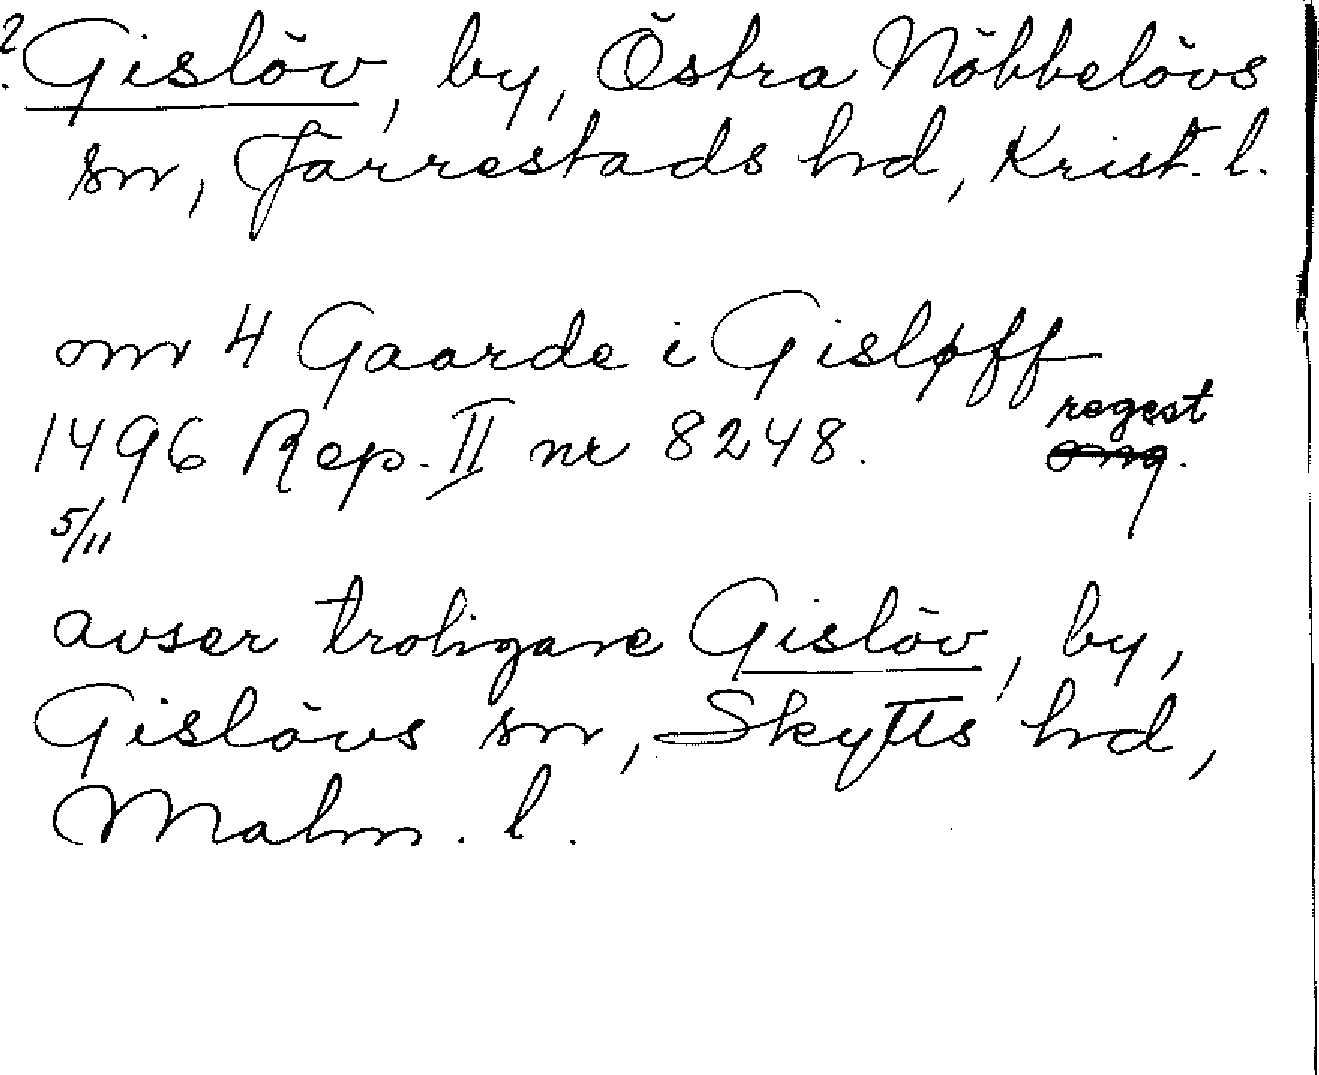 ? Gislöv, by, Östra Nöbbelövs
sn, Jarrestads hrd, Krist. l.
om 4 Gaarde i Gisløff
regest
1496 Rep. II nr 8248. orig.
5/11
avser troligare Gislöv, by,
Gislövs sn, Skytts hrd,
Malm. l.